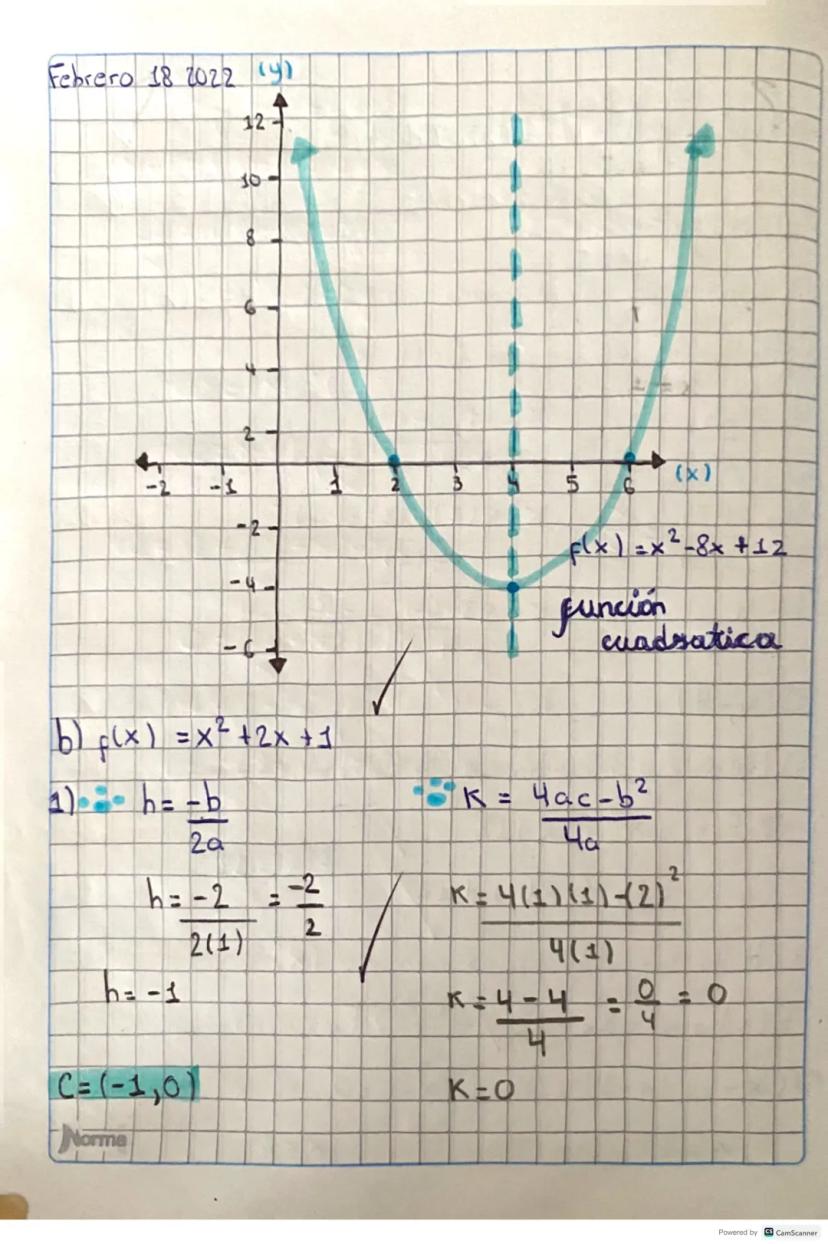 Febrero 18 2022 (y)
12
10
8
6
4
2
-2 -1 1 2 3 4 5 6 (x)
-2
-4
-6
f(x) = x² - 8x + 12
función
cuadratica
b) f(x) = x² + 2x + 1
1) h = -b/2a
K = 4ac - b²/4a
h = -2/2(1) = -2/2
K = 4(1)(1) - (2)²/4(1)
h = -1
K = 4 - 4/4 = 0/4 = 0
C = (-1,0)
K = 0
Norma
Powered by CS CamScanner